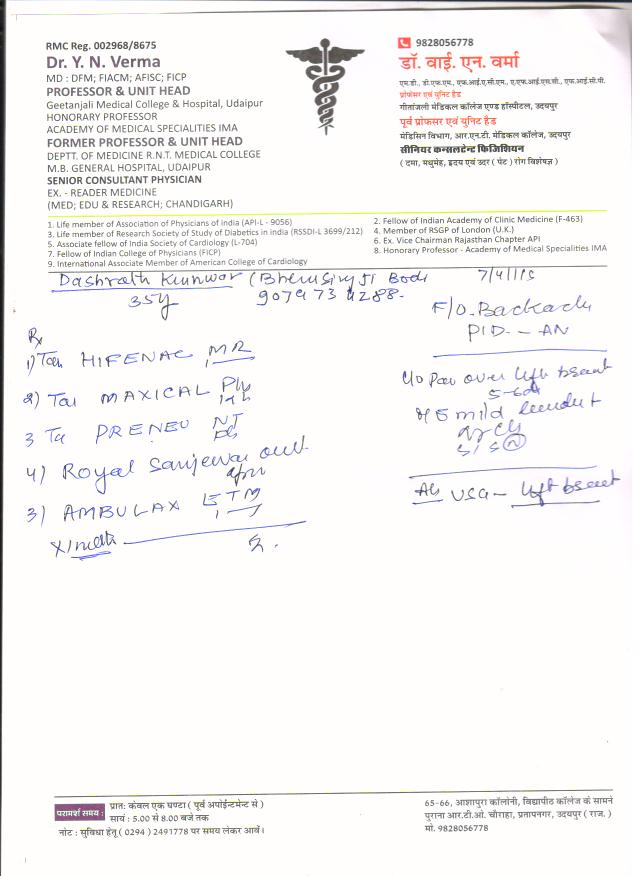 RMC Reg. 002968/8675
Dr. Y. N. Verma
MD : DFM; FIACM; AFISC; FICP
PROFESSOR & UNIT HEAD
Geetanjali Medical College & Hospital, Udaipur
HONORARY PROFESSOR
ACADEMY OF MEDICAL SPECIALITIES IMA
FORMER PROFESSOR & UNIT HEAD
DEPTT. OF MEDICINE R.N.T. MEDICAL COLLEGE
M.B. GENERAL HOSPITAL, UDAIPUR
SENIOR CONSULTANT PHYSICIAN
EX. - READER MEDICINE
(MED; EDU & RESEARCH; CHANDIGARH)
9828056778
डॉ. वाई. एन. वर्मा
एम.डी., डी.एफ.एम., एफ.आई.ए.सी.एम., ए.एफ.आई.एस.सी., एफ.आई.सी.पी.
प्रोफेसर एवं यूनिट हैड
गीतांजली मेडिकल कॉलेज एण्ड हॉस्पीटल, उदयपुर
पूर्व प्रोफेसर एवं यूनिट हैड
मेडिसिन विभाग, आर.एन.टी. मेडिकल कॉलेज, उदयपुर
सीनियर कन्सलटेन्ट फिजिशियन
( दमा, मधुमेह, हृदय एवं उदर ( पेट ) रोग विशेषज्ञ )
1. Life member of Association of Physicians of india (API-L - 9056)
3. Life member of Research Society of Study of Diabetics in india (RSSDI-L 3699/212)
5. Associate fellow of India Society of Cardiology (L-704)
7. Fellow of Indian College of Physicians (FICP)
9. International Associate Member of American College of Cardiology
2. Fellow of Indian Academy of Clinic Medicine (F-463)
4. Member of RSGP of London (U.K.)
6. Ex. Vice Chairman Rajasthan Chapter API
8. Honorary Professor - Academy of Medical Specialities IMA
Dashrath Kunwar (Bherusingh Ji
35y
F/O. Backache
PID - AN
Rx
1) Tab HIFENAC MR
2) Tab MAXICAL
3 Tab PRENEU NT
4) Royal Sanjewani
3) AMBULAX
c/o Pain over left breast
5-6d
mild
S/S (N)
Adv USG - left breast
परामर्श समय :
प्रातः केवल एक घण्टा ( पूर्व अपोईन्टमेन्ट से )
सायं : 5.00 से 8.00 बजे तक
नोट : सुविधा हेतू ( 0294 ) 2491778 पर समय लेकर आवें।
65-66, आशापुरा कॉलोनी, विद्यापीठ कॉलेज के सामने
पुराना आर.टी.ओ. चौराहा, प्रतापनगर, उदयपुर ( राज. )
मो. 9828056778